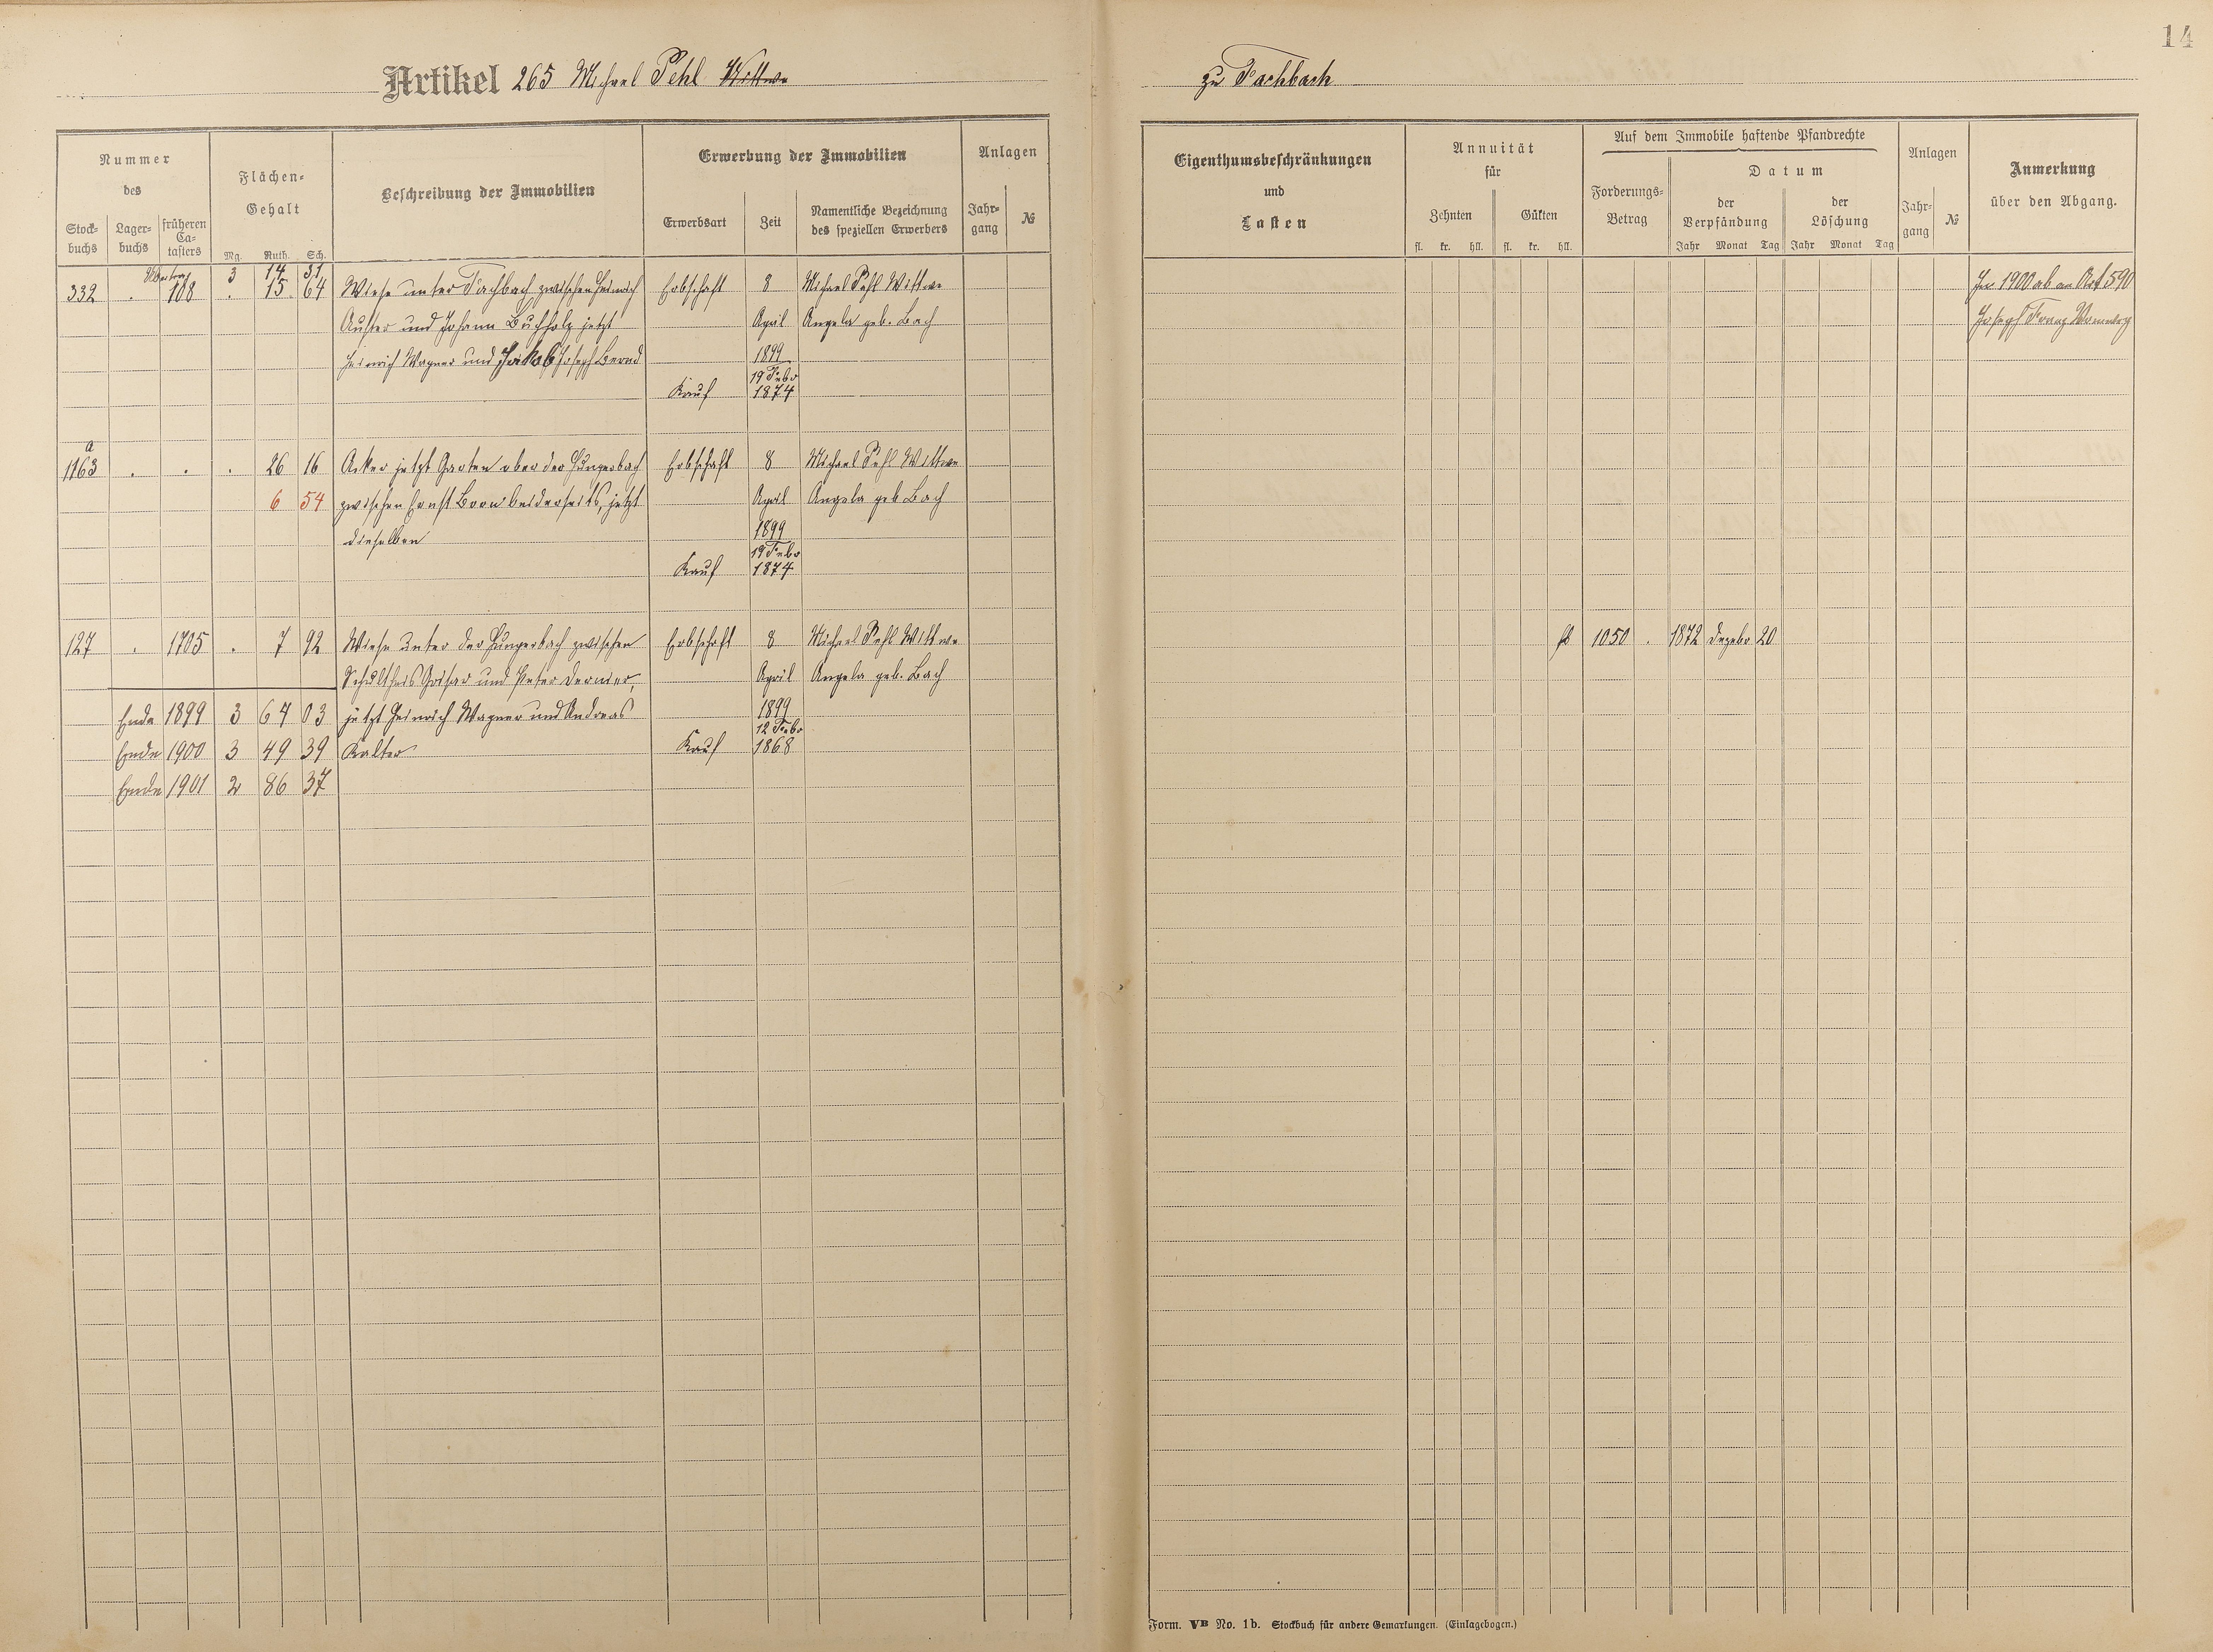 14
Artikel 265 Michael Pehl Wittwe
zu Fachbach
Nummer
des
Stock-
buchs
Lager-
buchs
früheren
Ca-
tasters
Flächen-
Gehalt
Mg. Ruth. Sch.
Beschreibung der Immobilien
Erwerbung der Immobilien
Erwerbsart
Zeit
Namentliche Bezeichnung
des speziellen Erwerbers
Anlagen
Jahr-
gang
№
Eigenthumsbeschränkungen
und
Lasten
Annuität
für
Zehnten
Gülten
fl. kr. hll. fl. kr. hll.
Auf dem Immobile haftende Pfandrechte
Forderungs-
Betrag
Datum
der
Verpfändung
der
Löschung
Jahr Monat Tag Jahr Monat Tag
Anlagen
Jahr-
gang
№
Anmerkung
über den Abgang.
Übertrag 3 14 31
332 . 108 . 15 64 Wiese unter Fachbach zwischen Heinrich Erbschaft 8 Michael Pehl Wittwe In 1900 ab an Art 590
und Johann Buchholz jetzt April Angela geb. Bach Joseph Franz
Heinrich Wagner und Jakob Joseph Bernd 1899
19 Febr
Kauf 1874
a
1163 . . . 26 16 Acker jetzt Garten ober der Hungerbach Erbschaft 8 Michael Pehl Wittwe
6 54 zwischen Ernst Born beiderseits, jetzt April Angela geb Bach
dieselben 1899
19 Febr
Kauf 1874
127 . 1705 . 7 92 Wiese unter der Hungerbach zwischen Erbschaft 8 Michael Pehl Wittwe fl 1050 . 1872 Dezebr 20
Schultheis Grisar und Peter Dernier, April Angela geb. Bach
Ende 1899 3 64 03 jetzt Heinrich Wagner und Andreas 1899
12 Febr
Ende 1900 3 49 39 Kalter Kauf 1868
Ende 1901 2 86 37
Form. VB No. 1b. Stockbuch für andere Gemarkungen. (Einlagebogen.)